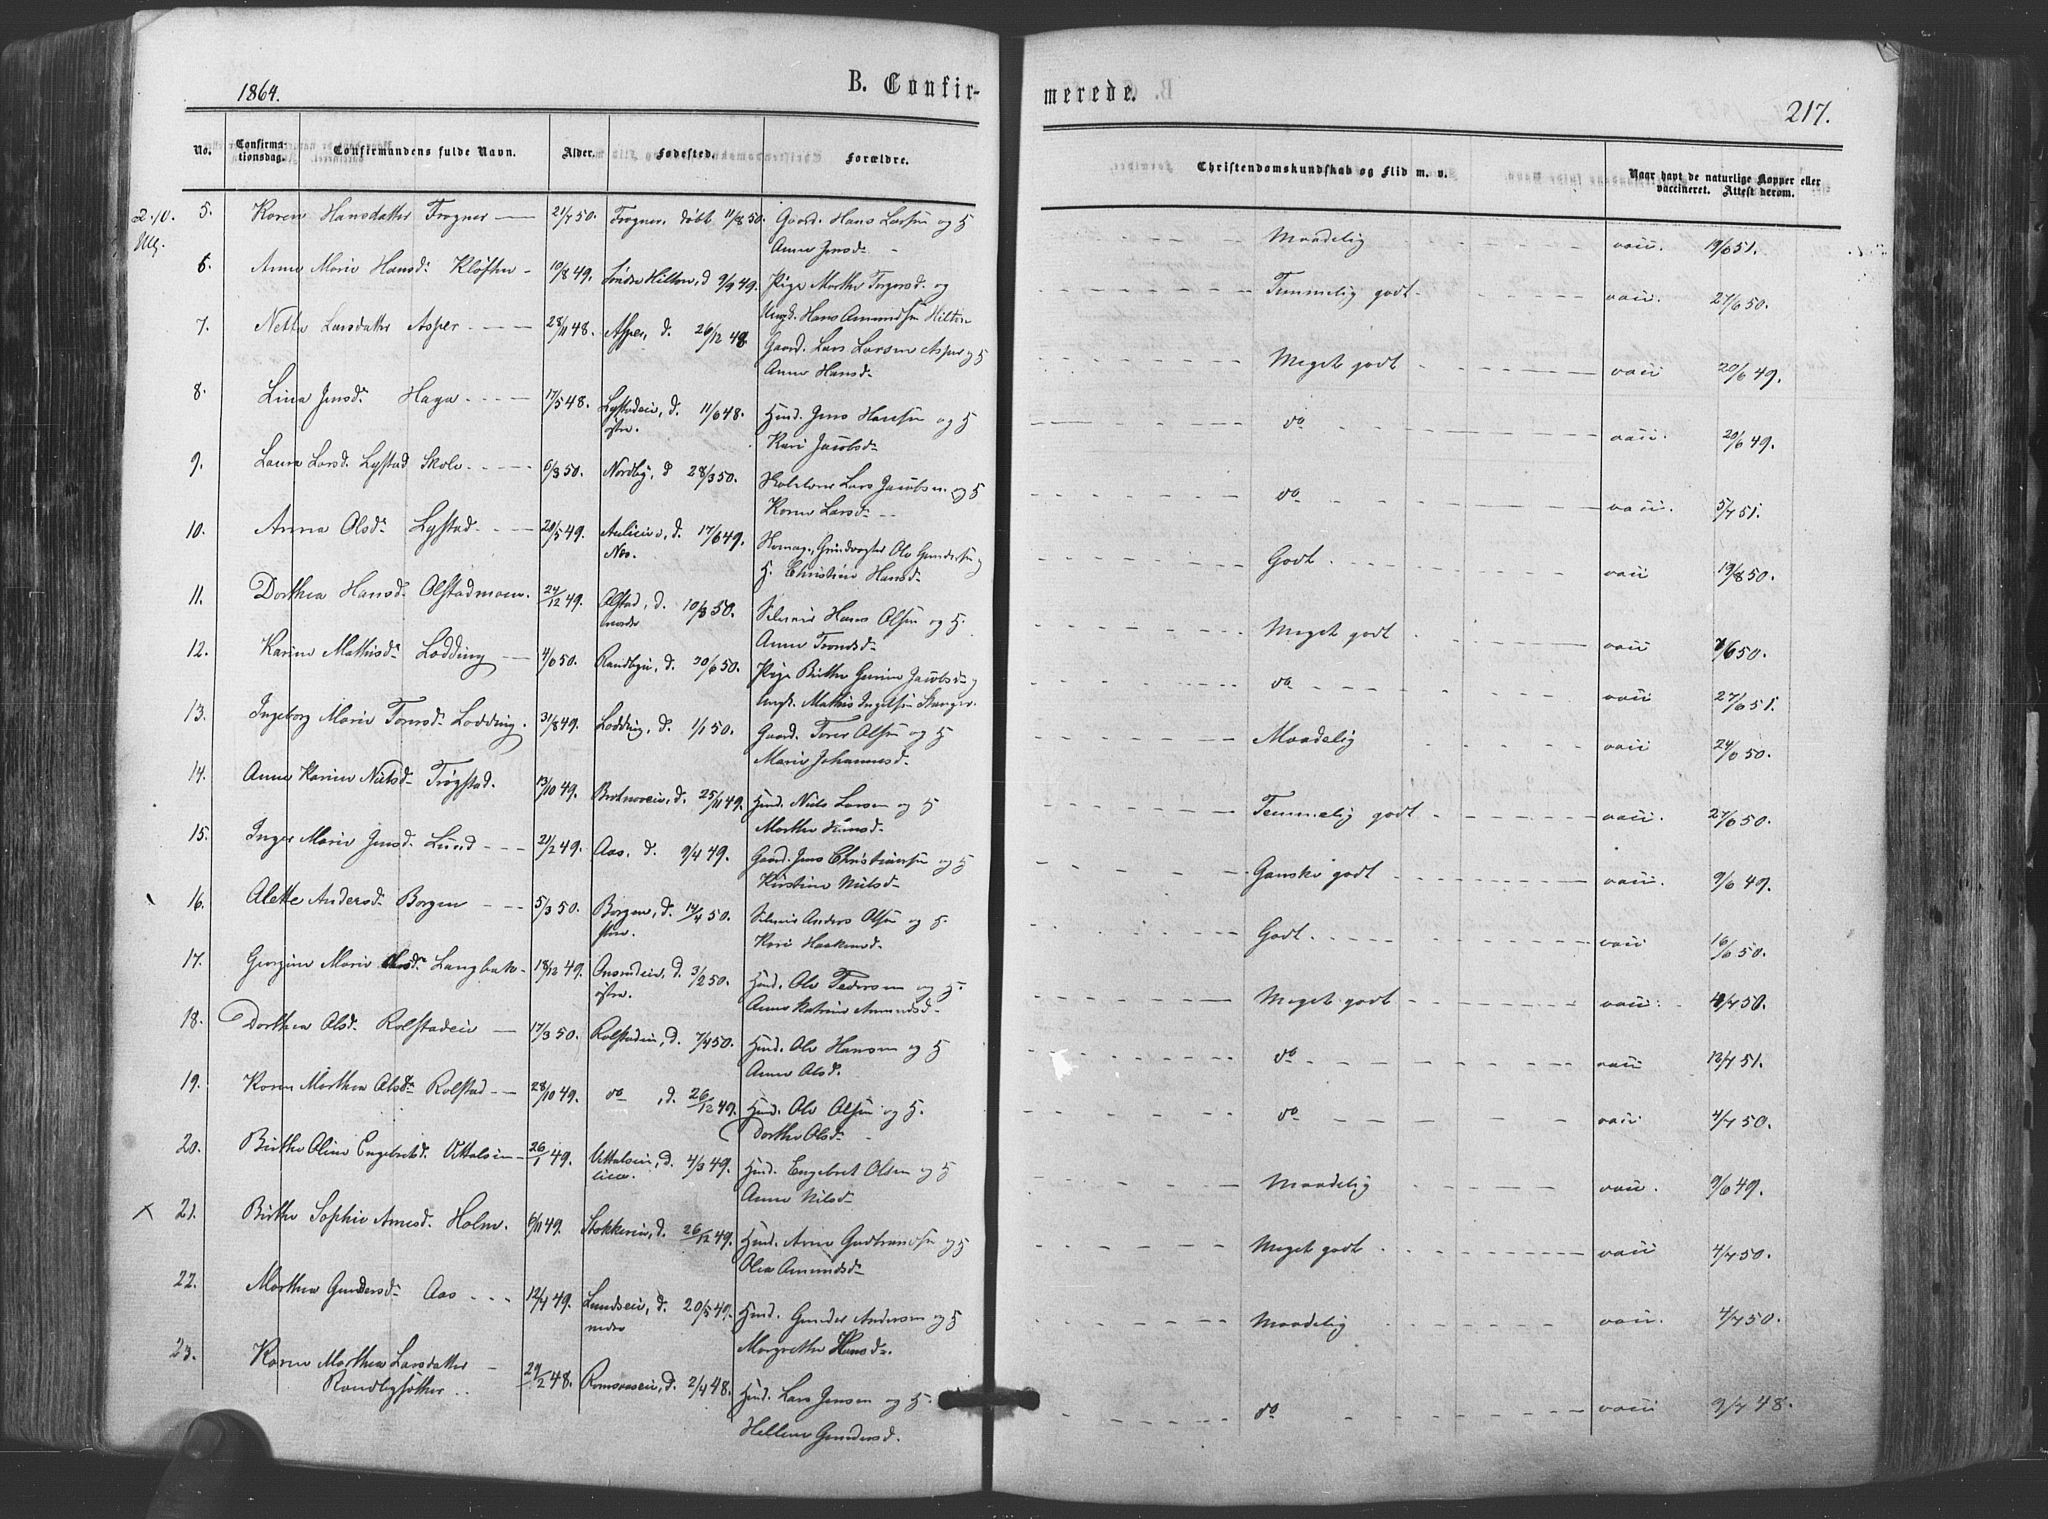 1864.
B. Confir-
merede.
217.
No.
Confirma-
tionsdag.
Confirmandens fulde Navn.
Alder.
Fødested.
Forældre.
Christendomskundskab og Flid m. v.
Naar havt de naturlige Kopper eller
vaccineret. Attest derom.
5. Karen Hansdatter Frogner 21/7 50. Frogner, døbt 11/8 50. Gaard. Hans Larsen og H
Anne Jensd. Maadelig vacc. 19/6 51.
6. Anne Marie Hansd. Kløften 10/8 49. Søndre Hilton, d. 9/9 49. Pige Marthe Torgersd. og
Ungk. Hans Amundsen Hilton Temmelig godt vacc. 27/6 50.
7. Nette Larsdatter Asper 28/11 48. Asper, d. 26/12 48. Gaard. Lars Larsen Asper og H
Anne Hansd. Meget godt vacc 20/6 49.
8. Lina Jensd. Haga 17/5 48. Lystadeie, d. 11/6 48.
østre. Husd. Jens Hansen og H
Kari Jacobsd. do vacc. 20/6 49.
9. Laura Larsd. Lystad Skole 6/3 50. Nordby, d. 28/3 50. Lars Jacobsen og H
Karen Larsd. do vacc. 5/7 51.
10. Anna Olsd. Lystad 20/5 49. d. 17/6 49. Ole Gundersen og
H. Christine Hansd. Godt vacc 19/8 50.
11. Dorthea Hansd. Olstadmoen. 24/12 49. Olstad, d. 10/3 50.
nordre Selveier Hans Olsen og H.
Anne Trondsd. Meget godt vacc /6 50.
12. Karine Mathisd. Lodding 4/6 50. Randbyeie, d. 30/6 50. Pige Birthe Gurine Jacobsd. og
Ungk. Mathis Ingelsen Stanger. do vacc 27/6 51.
13. Ingeborg Marie Torersd. Lodding. 31/8 49. Lodding, d. 1/1 50. Gaard. Torer Olsen og H
Marie Johannesd. Maadelig vacc 24/6 50.
14. Anne Karine Nielsd. Trøgstad. 13/10 49. d. 25/11 49. Husd. Niels Larsen og H
Marthe Hansd. Temmelig godt vacc. 27/6 50.
15. Inger Marie Jensd. Lund 21/2 49. Aas. d. 9/4 49. Gaard. Jens Christiansen og H
Kirstine Nielsd. Ganske godt vacc. 9/6 49.
16. Alette Andersd. Borgen 5/3 50. Borgen, d. 14/4 50.
store. Selveier Anders Olsen og H.
Kari Haakensd. Godt vacc 16/6 50.
17. Georgine Marie Olsd. Langbak 18/12 49. d. 3/2 50.
østre. Husd. Ole Pedersen og H.
Anne Katrine Amundsd. Meget godt vacc. /7 50.
18. Dorthea Olsd. Rolstadeie 17/3 50. Rolstadeie, d. 7/4 50. Husd. Ole Hansen og H
Anne Olsd. do vacc 12/7 51.
19. Karen Marthea Olsd. Rolstad 28/10 49. do, d. 26/12 49. Husd. Ole Olsen og H.
Dorthe Olsd. do vacc 4/7 50.
20. Birthe Oline Engebretsd. 26/1 49. d. 4/3 49. Husd. Engebret Olsen og H
Anne Nilsd. Maadelig vacc. 9/6 49.
21. Birthe Sophie Arnesd. Holm. 6/11 49. Stokkereie, d. 26/12 49. Husd. Arne Gudbrandsen og H
Olea Amundsd. Meget godt vacc 4/7 50.
22. Marthea Gundersd. Aas 12/4 49. Lundseie, d. 20/5 49.
nedre Husd. Gunder Andersen og H
Margrethe Hansd. Maadelig vacc. 4/7 50.
23. Karen Marthea Larsdatter
Randbysæther 29/2 48. d. 2/4 48. Husd. Lars Jensen og H.
Hellene Gundersd. do vacc 9/7 48.